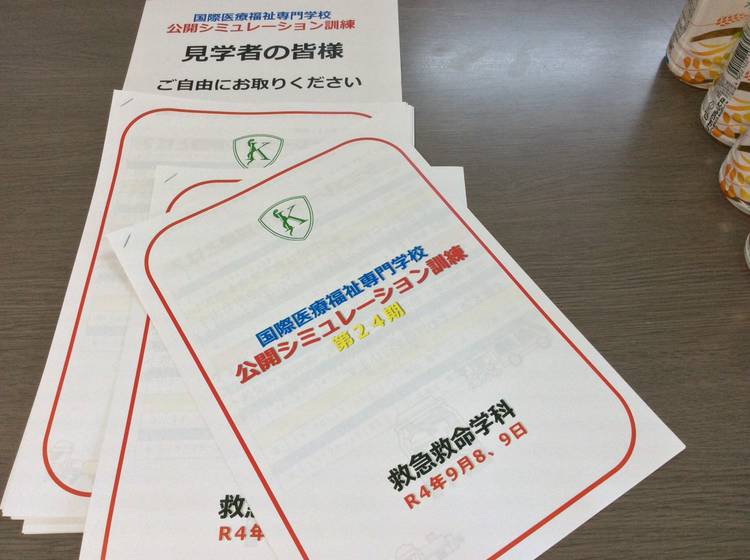 国際医療福祉専門学校
公開シミュレーション訓練
見学者の皆様
ご自由にお取りください
K
K
国際医療福祉専門学校
公開シミュレーション訓練
第24期
救急救命学科
R4年9月8、9日
救急
R4年